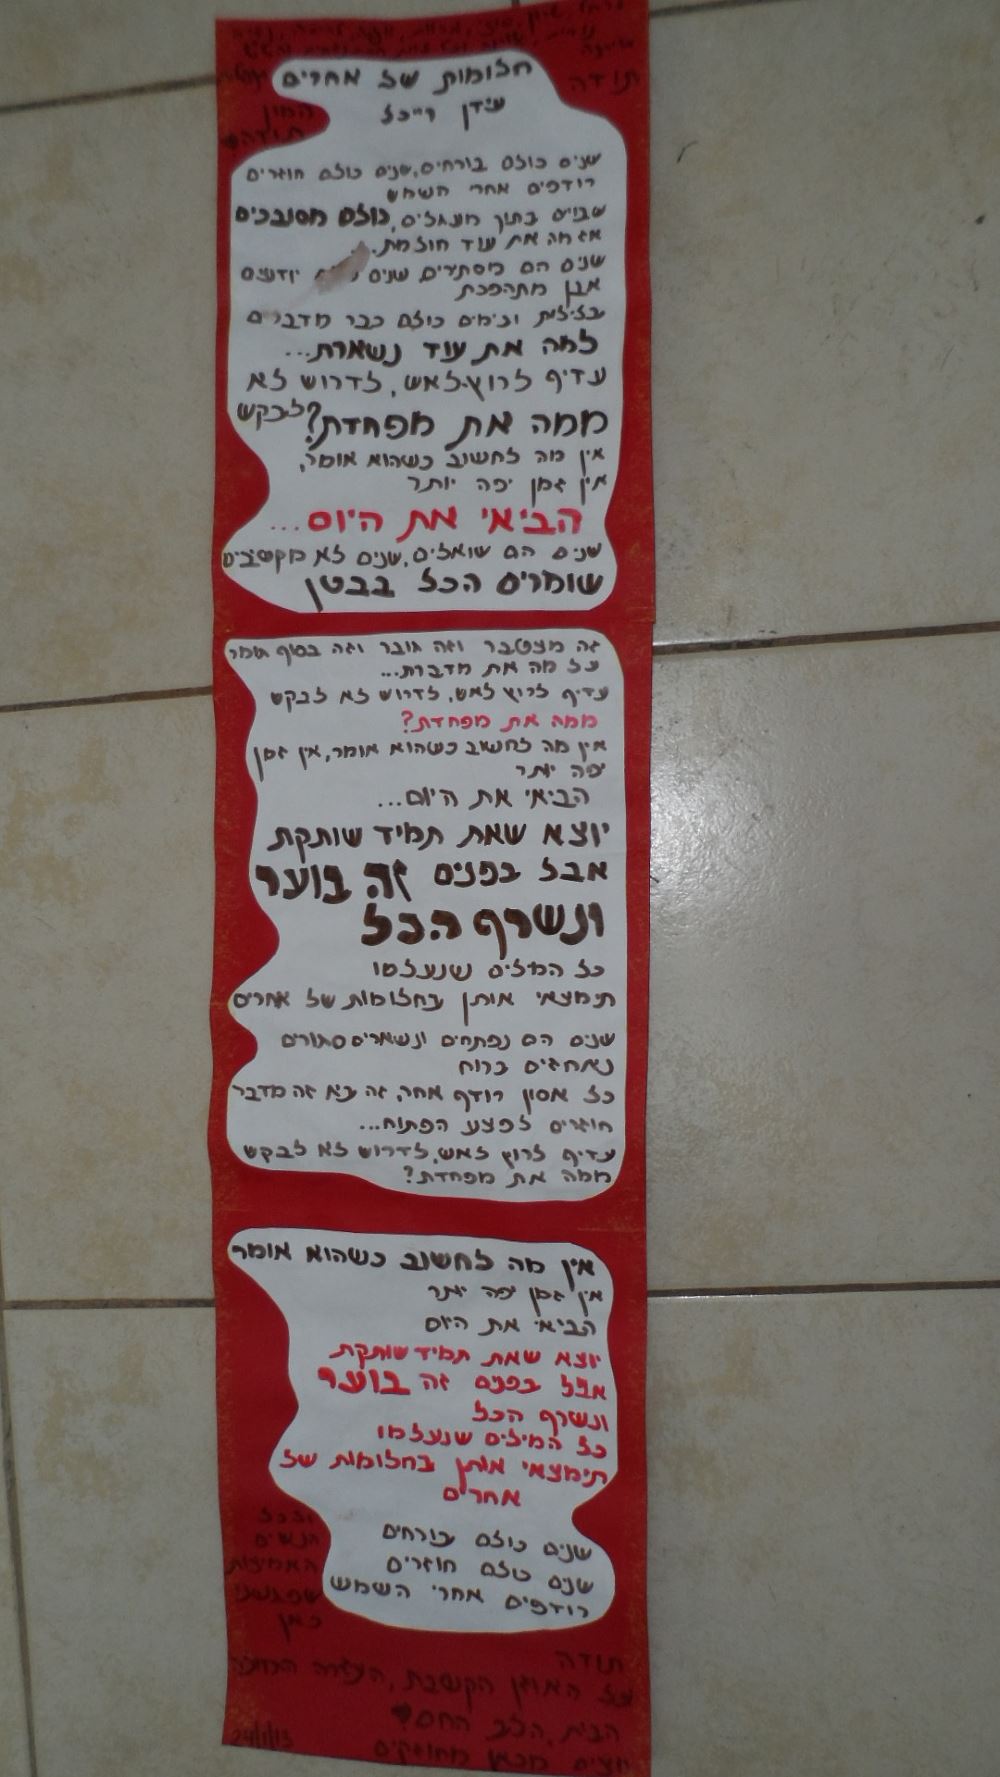 תודה
המון
תודה
חלומות של אחרים
עידן רייכל
שנים כולם בורחים, שנים כולם חוזרים
רודפים אחרי השמש
שבויים בתוך מעגלים, כולם מסובכים
אז מה את עוד חולמת...
שנים הם מסתירים, שנים יודעים
אבן מתהפכת
בלילות ובימים כולם כבר מדברים
למה את עוד נשארת...
עדיף לרוץ לאש, לדרוש לא
לבקש
ממה את מפחדת?
אין מה לחשוב כשהוא אומר,
אין זמן יפה יותר
הביאי את היום...
שנים הם שואלים, שנים לא מקשיבים
שומרים הכל בבטן
זה מצטבר וזה עובר וזה בסוף שמר
על מה את מדברת...
עדיף לרוץ לאש, לדרוש לא לבקש
ממה את מפחדת?
אין מה לחשוב כשהוא אומר, אין זמן
יפה יותר
הביאי את היום...
יוצא שאת תמיד שותקת
אבל בפנים זה בוער
ונשרף הכל
כל המלים שנעלמו
תימצאי אותן בחלומות של אחרים
שנים הם נפתחים ונשארים סתורים
נאחזים ברוח
כל אסון רודף אחר, זה בא זה מדבר
חוזרים לפצע הפתוח...
עדיף לרוץ לאש, לדרוש לא לבקש
ממה את מפחדת?
אין מה לחשוב כשהוא אומר
אין זמן יפה יותר
הביאי את היום
יוצא שאת תמיד שותקת
אבל בפנים זה בוער
ונשרף הכל
כל המילים שנעלמו
תימצאי אותן בחלומות של
אחרים
שנים כולם בורחים
שנים כולם חוזרים
רודפים אחרי השמש
ולכל
הנשים
האמיצות
שפגשתי
כאן
תודה
על האוזן הקשבת, העזרה
הבית, הלב החם
יוצאים מכאן מחוזקים
24/1/13